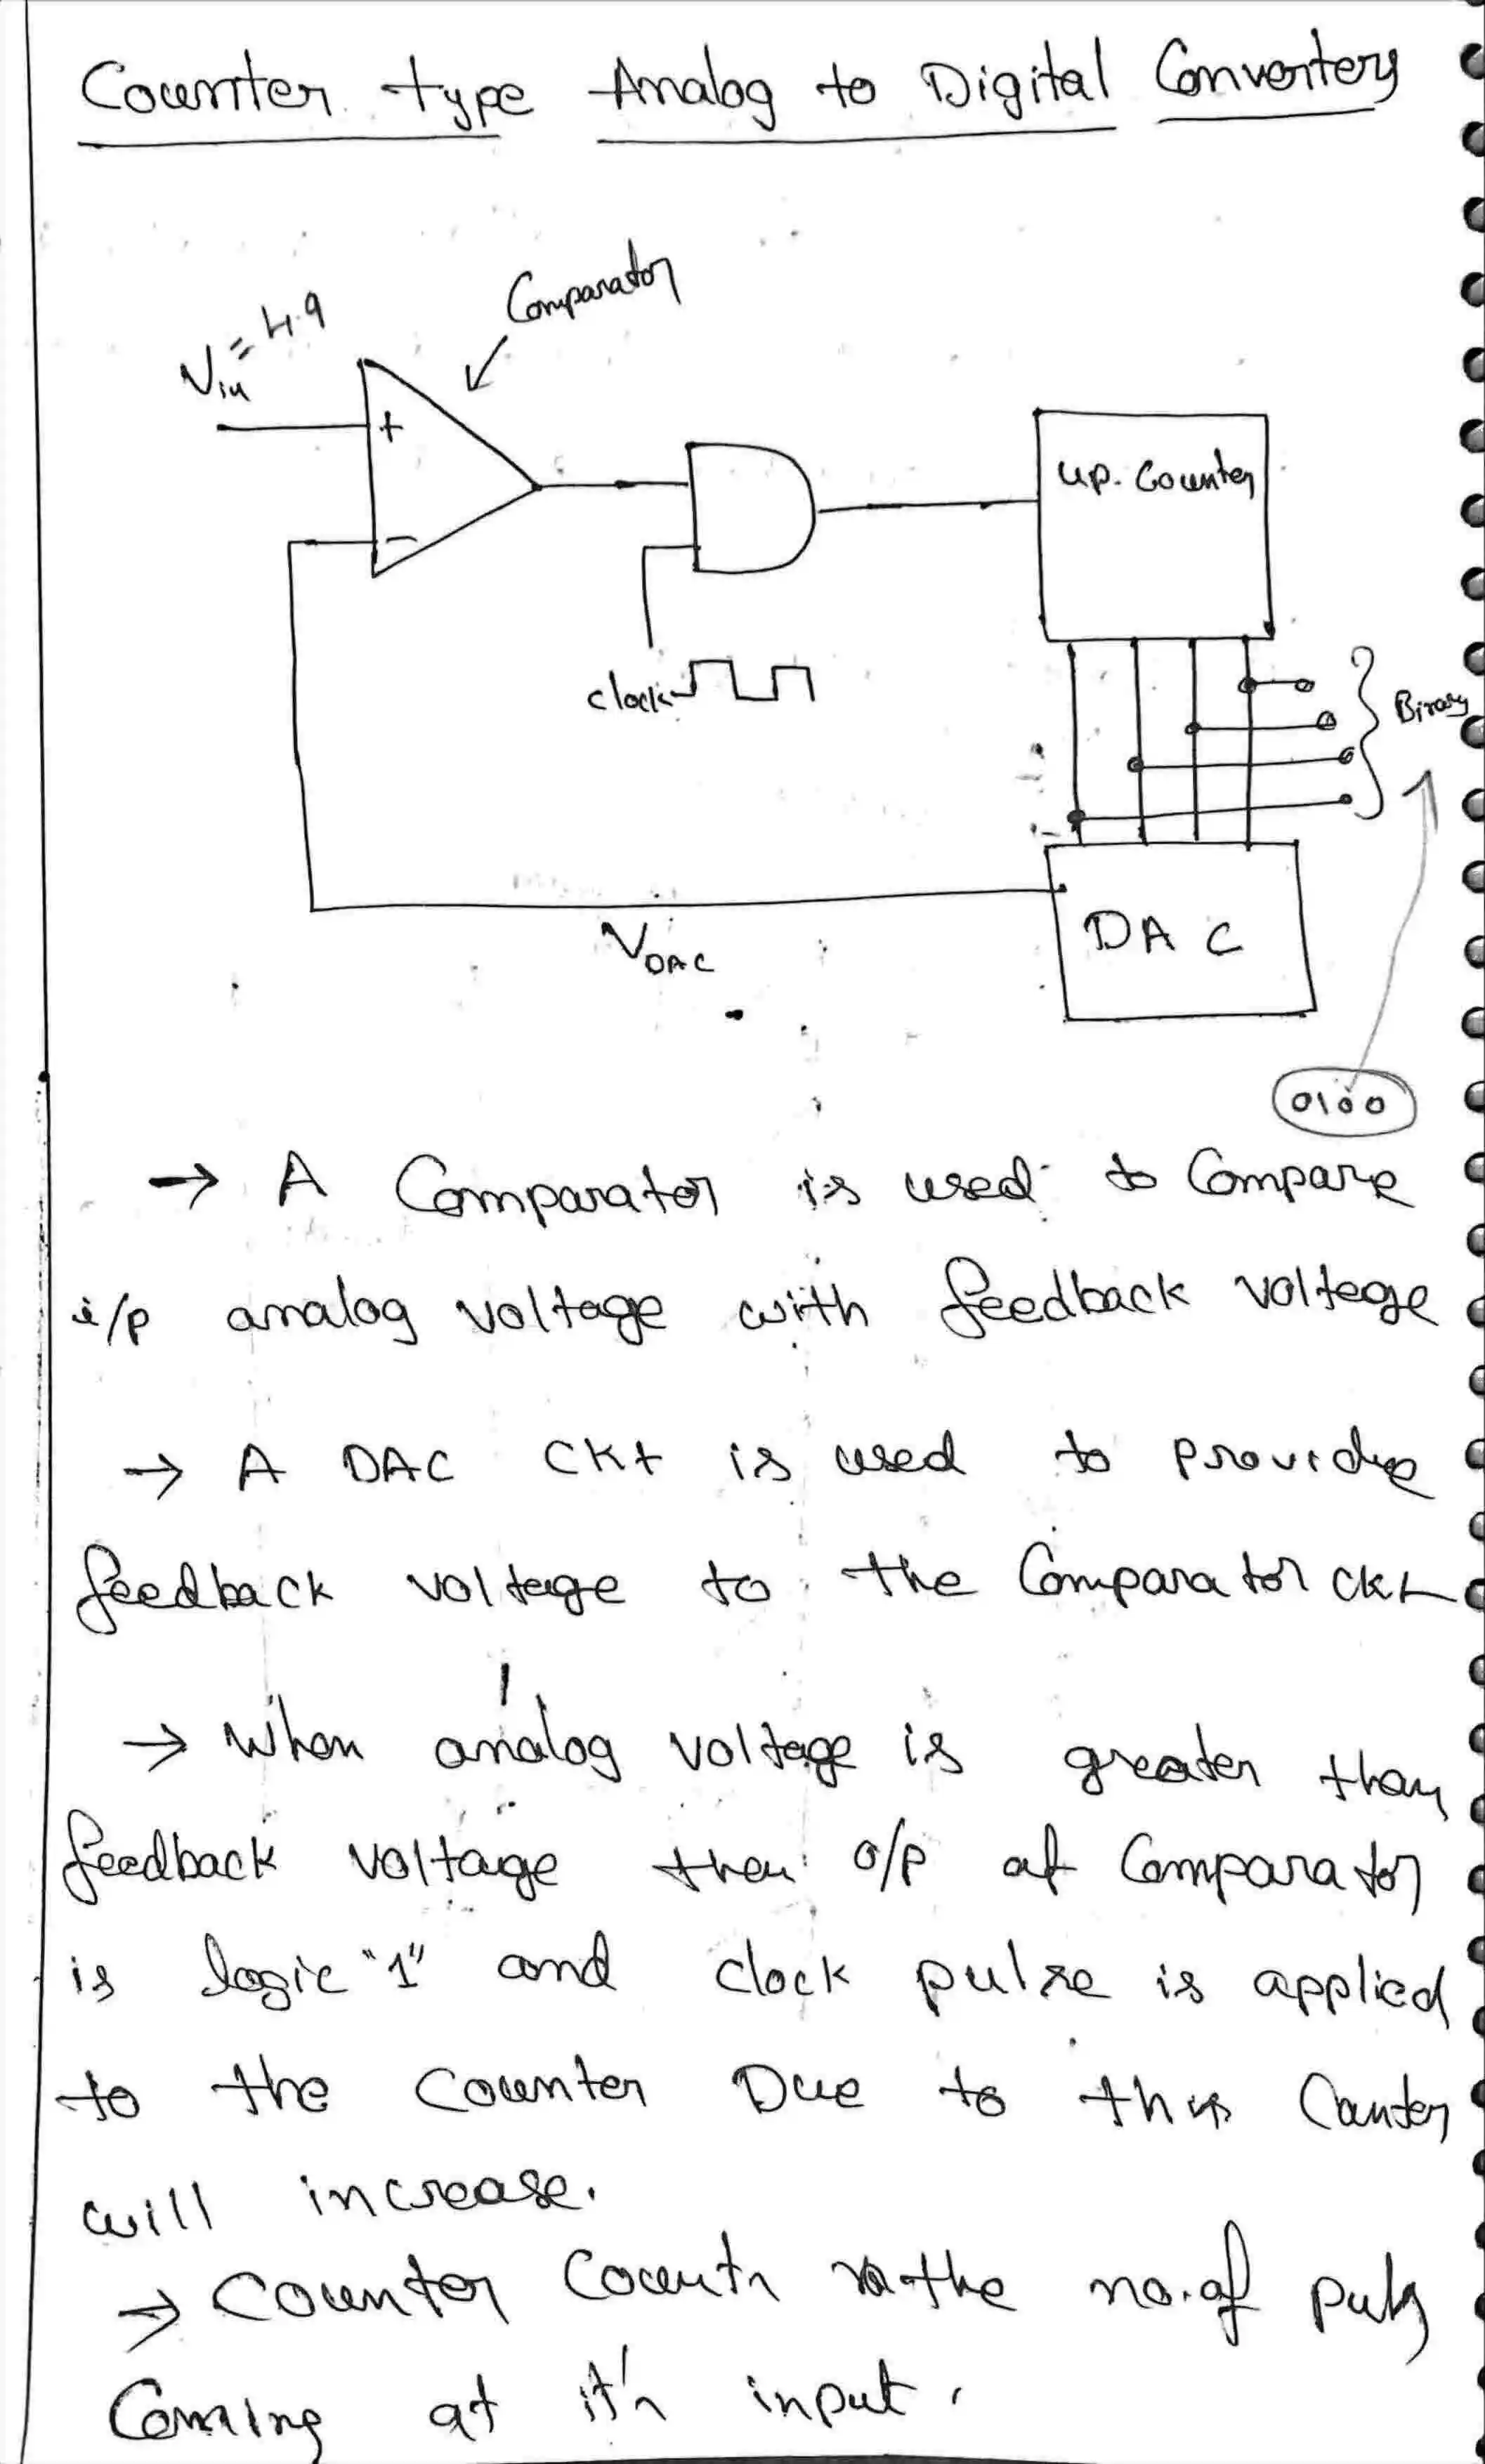 Counter type Analog to Digital Converters
Comparator
Vin = 4.9
+
-
up. Counter
clock
Binary
VDAC
DAC
0100
→ A Comparator is used to Compare
i/p analog voltage with feedback voltege
→ A DAC CKt is used to provide
feedback voltege to the Comparator ckt
→ When analog voltage is greater than
feedback voltage then o/p of Comparator
is logic "1" and clock pulse is applied
to the Counter Due to this Counter
will increase.
→ Counter Counts the no. of
Coming at it's input.